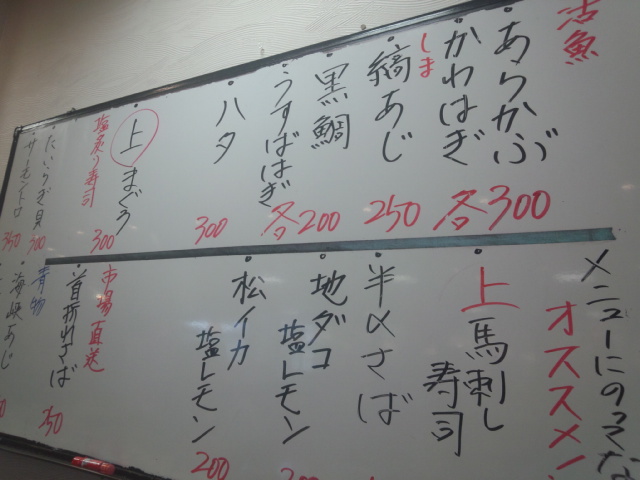 活魚
・あらかぶ
・かわはぎ
各300
しま
・縞あじ
250
・黒鯛
・うすばはぎ
各200
・ハタ
300
・上まぐろ
塩炙り寿司
300
・たいらぎ貝
300
サーモントロ
350
メニューにのってな
オススメ
・上馬刺し
寿司
・半〆さば
・地ダコ
塩レモン
・松イカ
塩レモン
200
市場直送
・首折れさば
250
青物
・海峡あじ